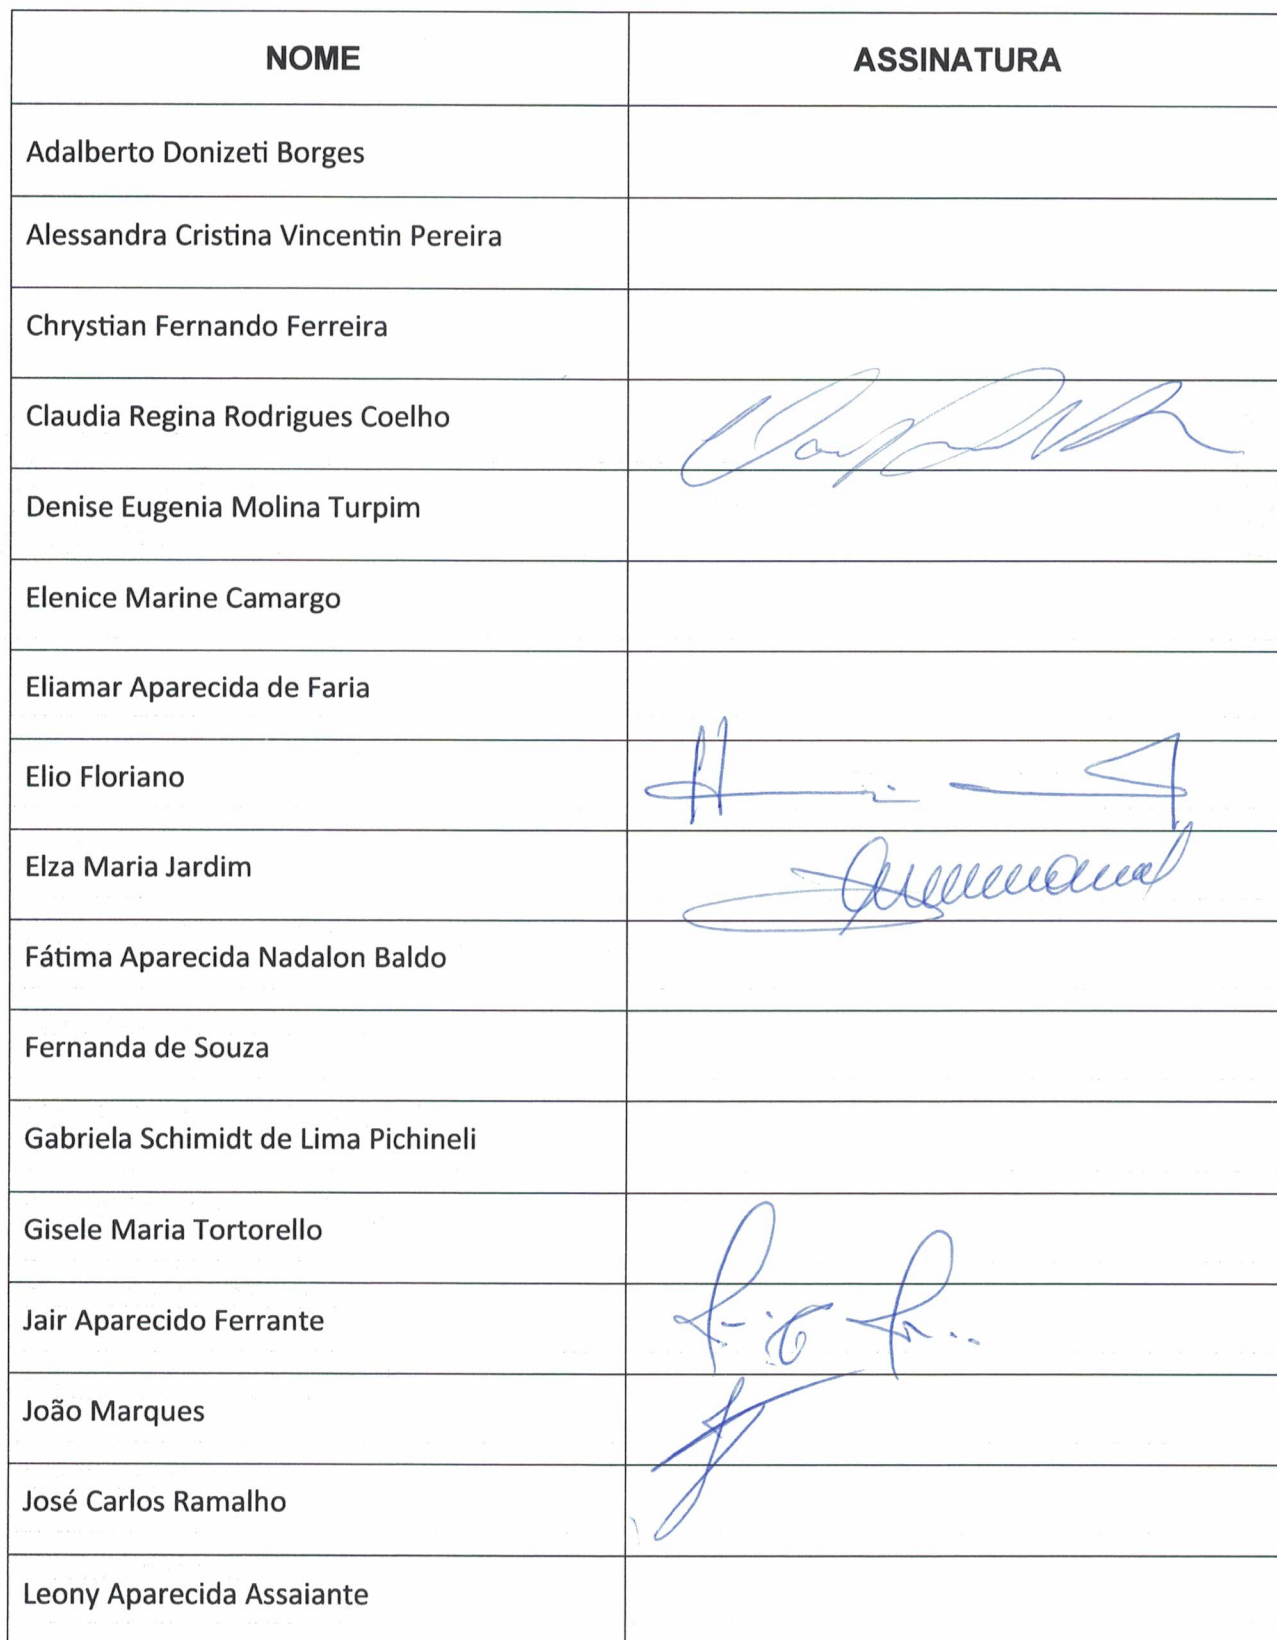 NOME ASSINATURA
Adalberto Donizeti Borges
Alessandra Cristina Vincentin Pereira
Chrystian Fernando Ferreira
Claudia Regina Rodrigues Coelho
Denise Eugenia Molina Turpim
Elenice Marine Camargo
Eliamar Aparecida de Faria
Elio Floriano
Elza Maria Jardim
Fátima Aparecida Nadalon Baldo
Fernanda de Souza
Gabriela Schimidt de Lima Pichineli
Gisele Maria Tortorello
Jair Aparecido Ferrante
João Marques
José Carlos Ramalho
Leony Aparecida Assaiante